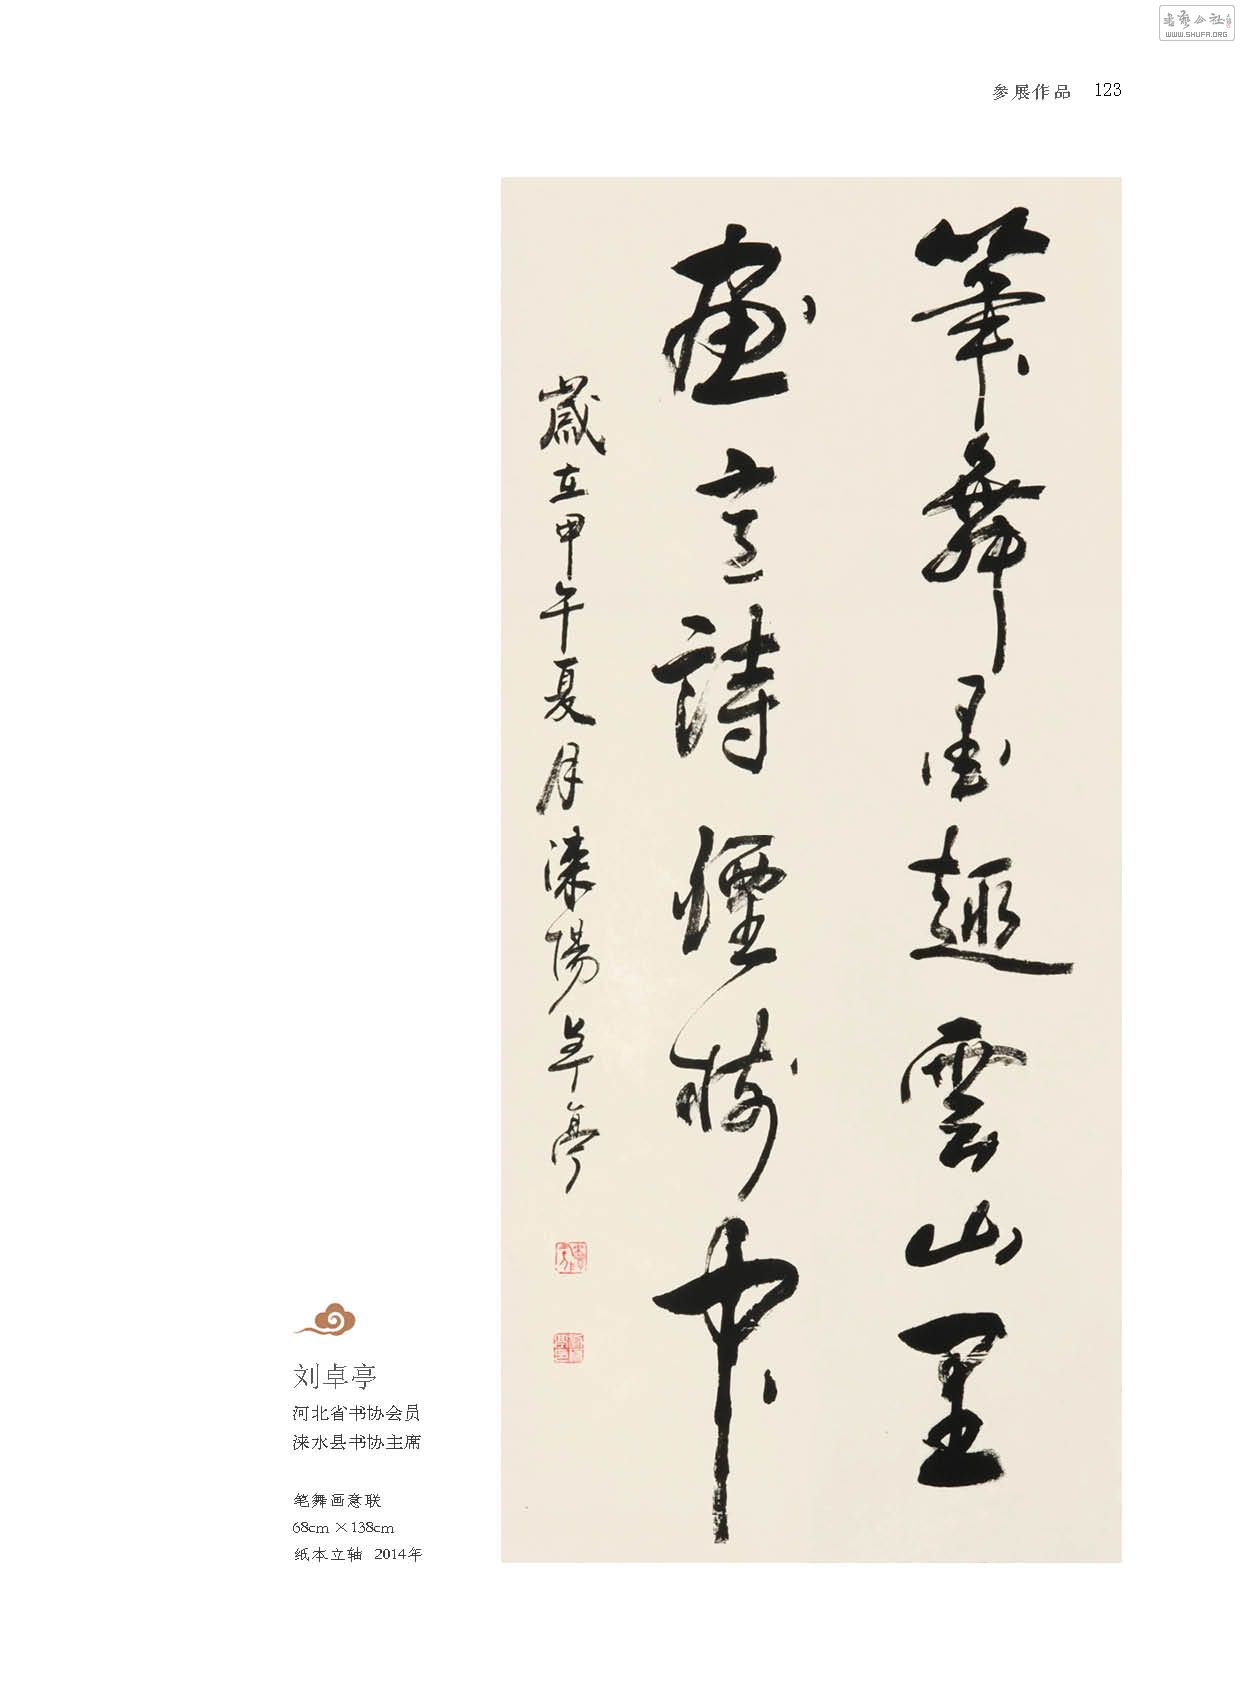 书艺公社
WWW.SHUFA.ORG
参展作品 123
筆舞墨趣雲山里
畫意詩情煙樹中
歲在甲午夏月涞陽卓亭
刘卓亭
河北省书协会员
涞水县书协主席
笔舞画意联
68cm×138cm
纸本立轴 2014年